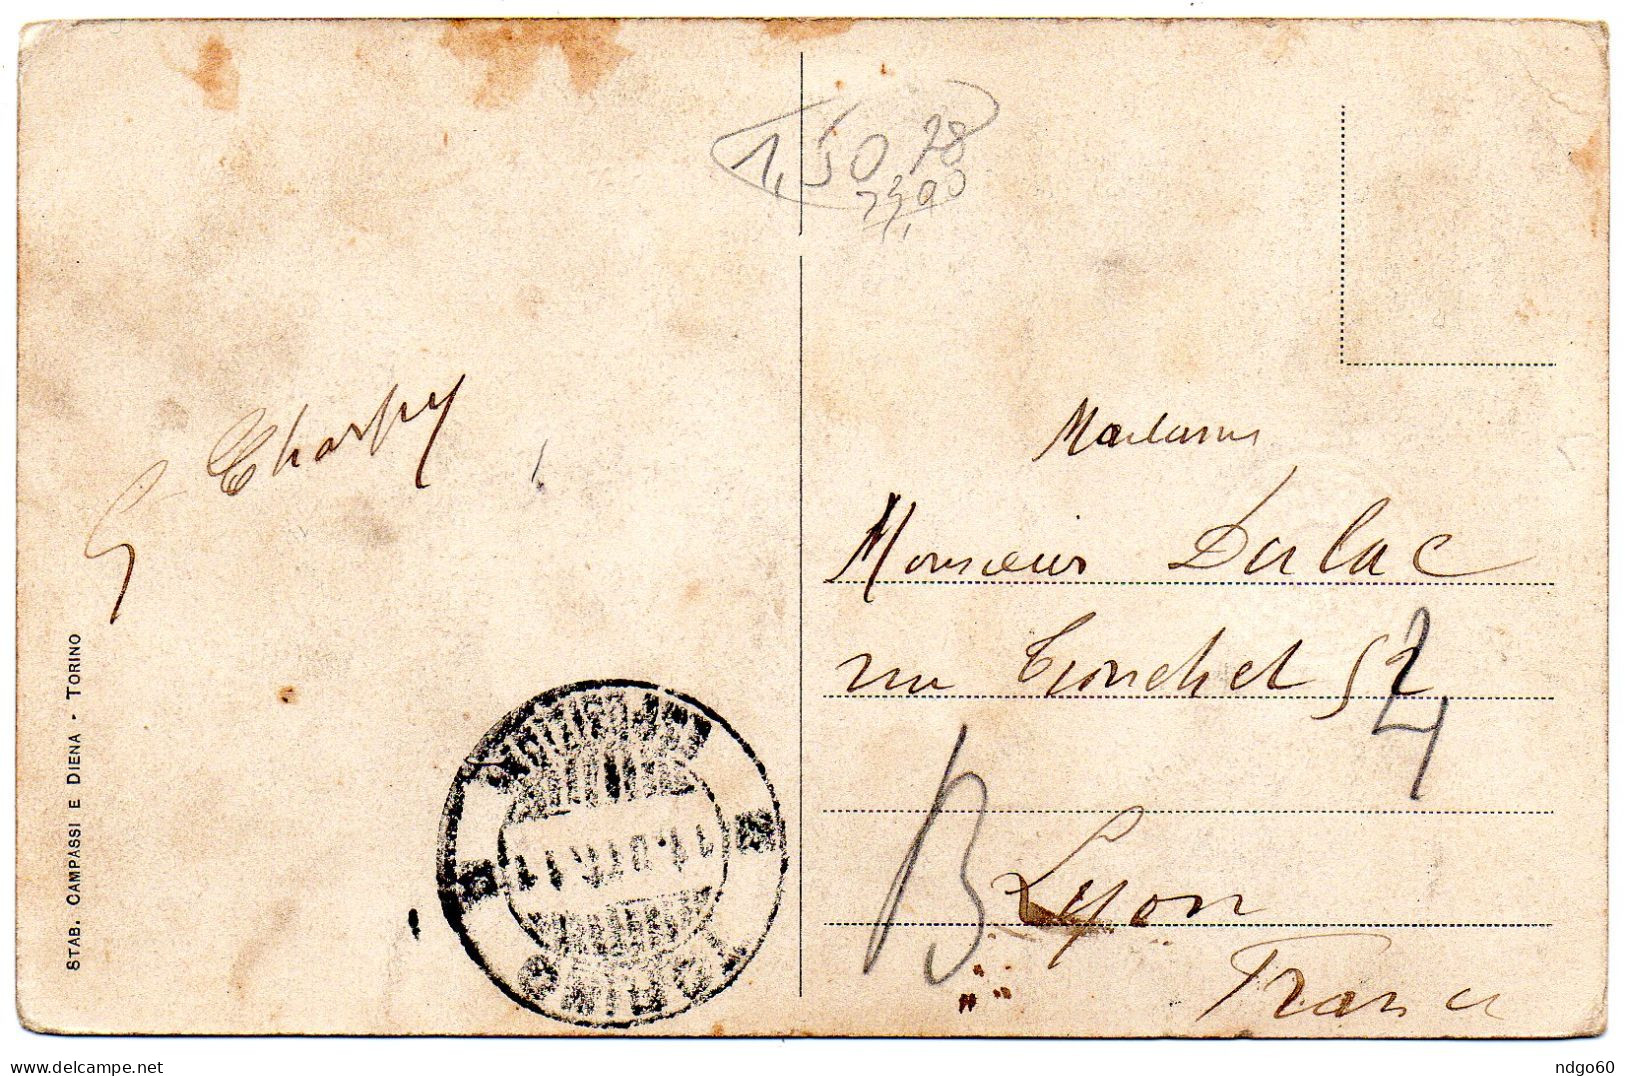 1,50 78
G Charpy
Madame
Monsieur Dulac
rue Tronchet 52
B
Lyon
France
STAB. CAMPASSI E DIENA - TORINO
ndgo60